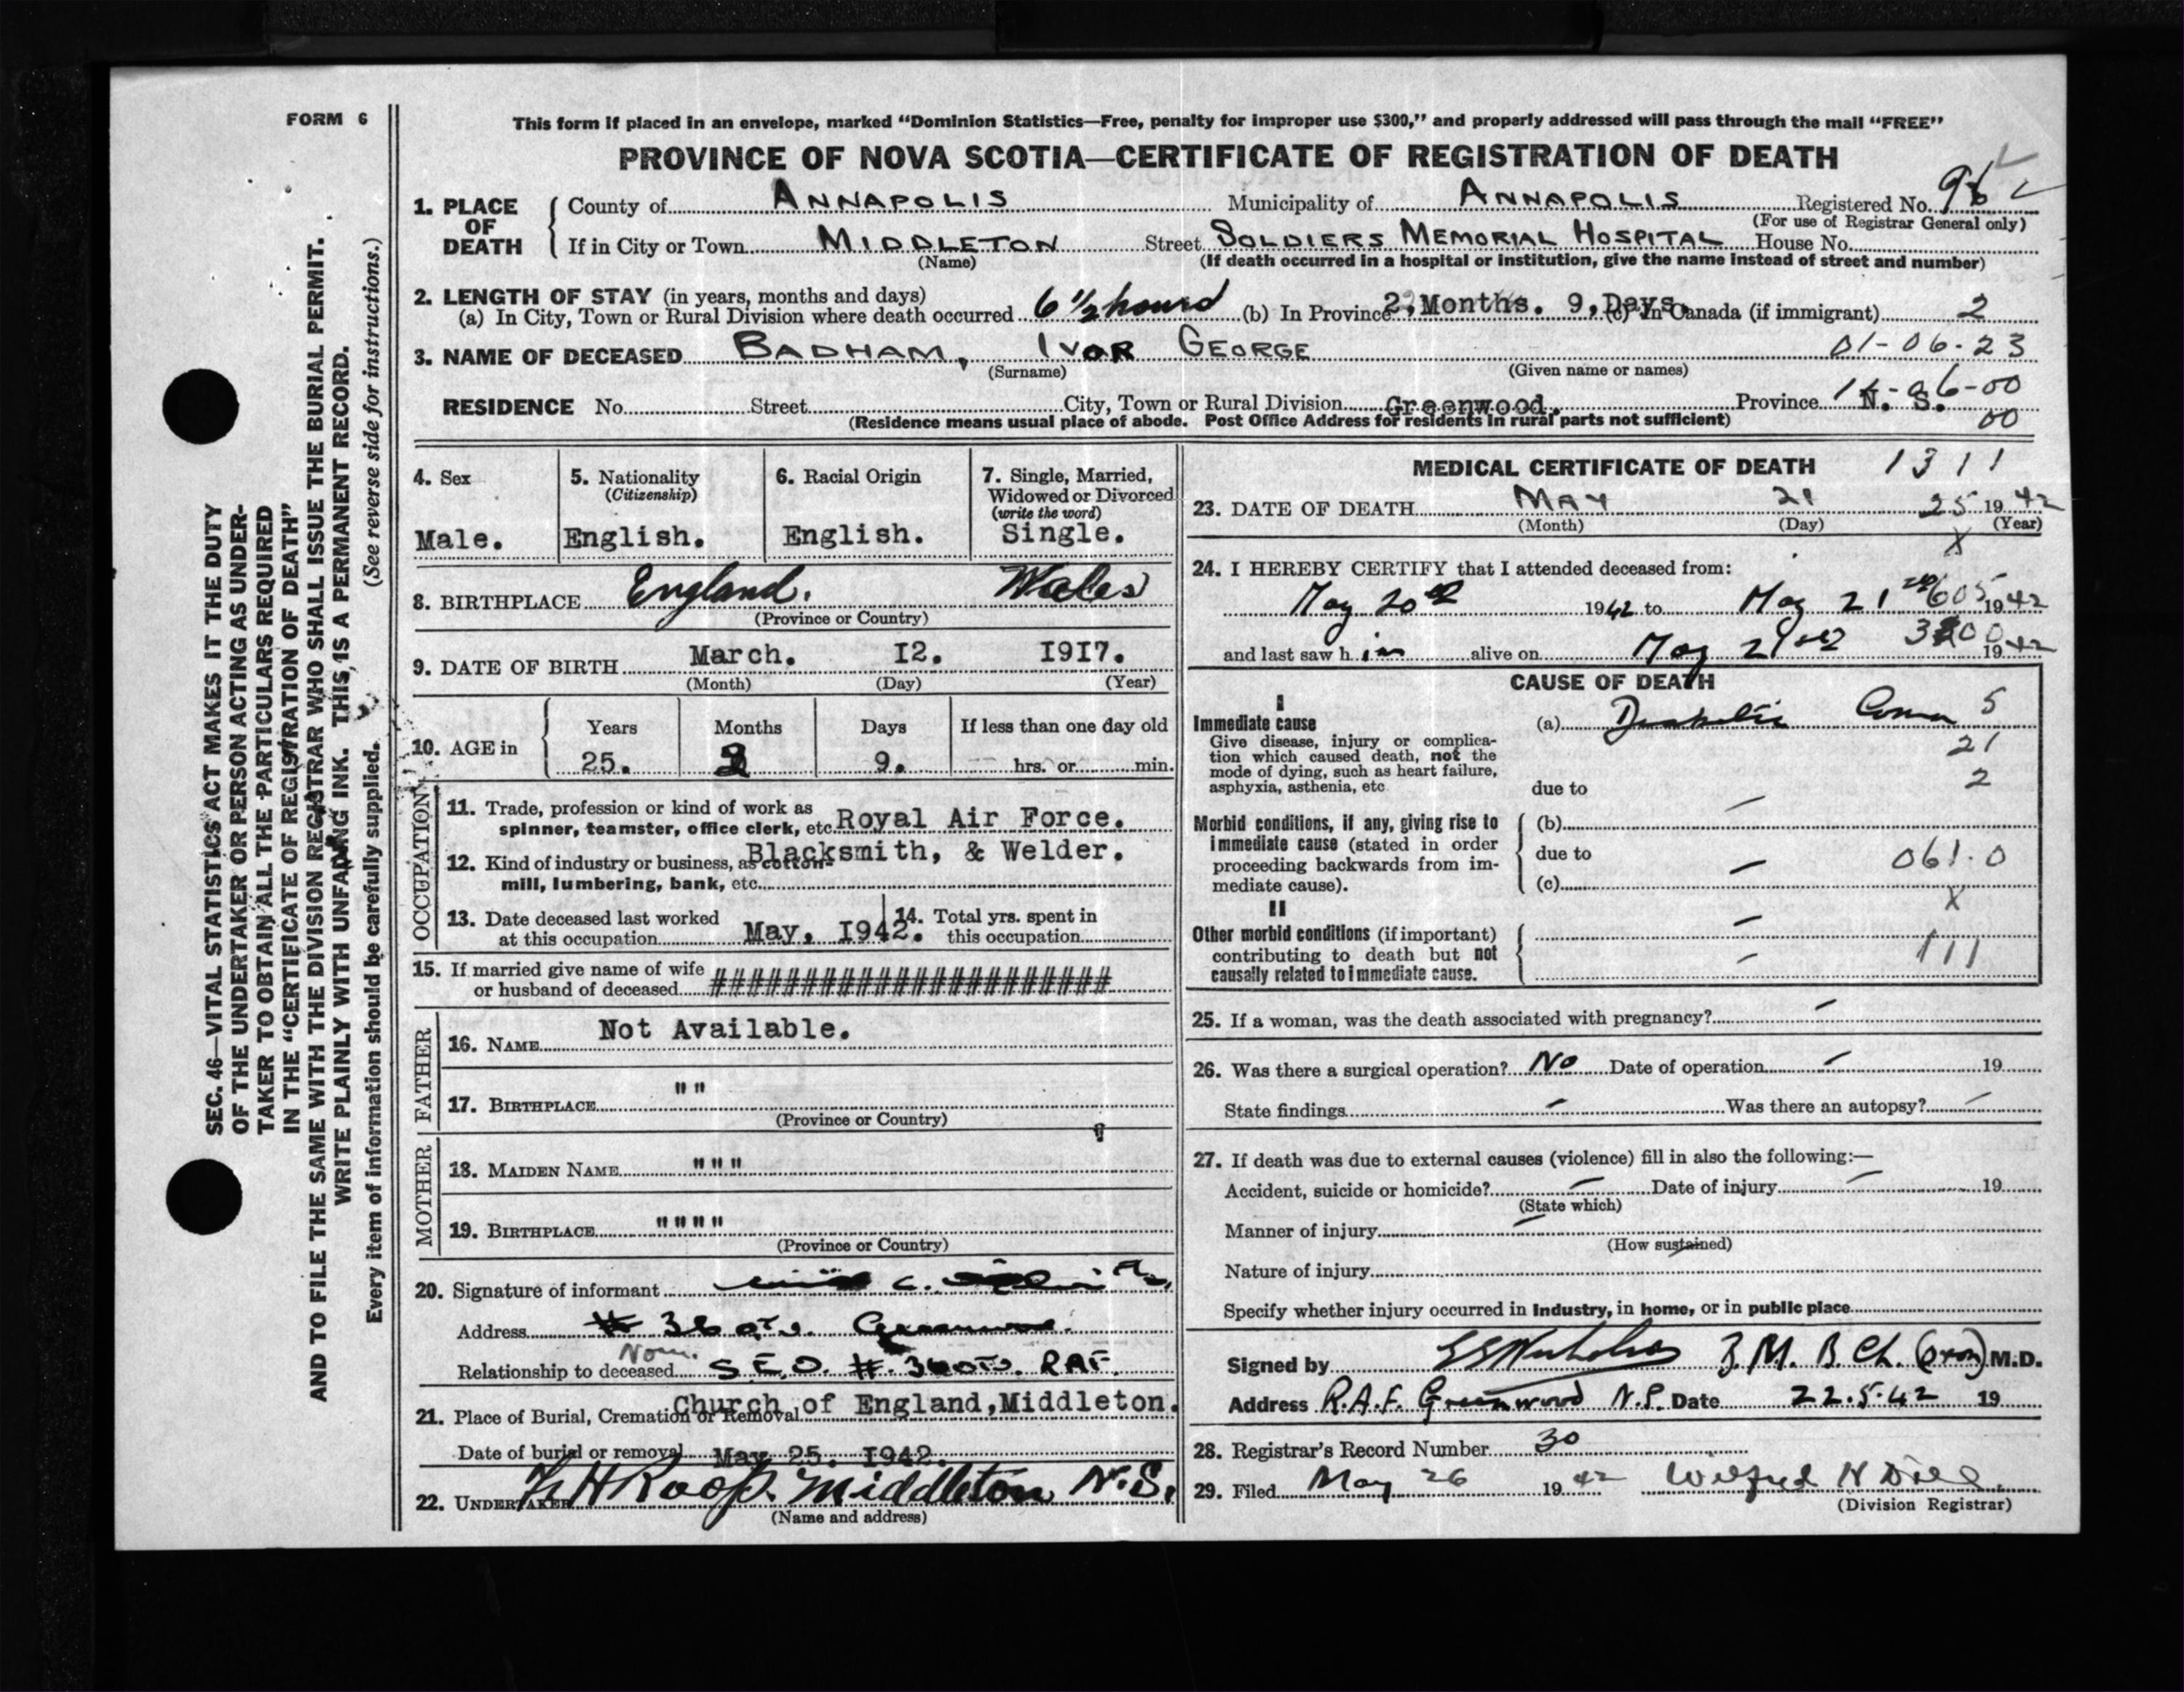 FORM 6
This form if placed in an envelope, marked “Dominion Statistics—Free, penalty for improper use $300,” and properly addressed will pass through the mail “FREE”
PROVINCE OF NOVA SCOTIA—CERTIFICATE OF REGISTRATION OF DEATH
1. PLACE OF DEATH County of ANNAPOLIS Municipality of ANNAPOLIS Registered No. 96
(For use of Registrar General only)
If in City or Town MIDDLETON Street SOLDIERS MEMORIAL HOSPITAL House No.
(Name) (If death occurred in a hospital or institution, give the name instead of street and number)
2. LENGTH OF STAY (in years, months and days)
(a) In City, Town or Rural Division where death occurred 6 1/2 hours (b) In Province 2, Months. 9, Days. (c) In Canada (if immigrant) 2
3. NAME OF DECEASED BADHAM, IVOR GEORGE 01-06-23
(Surname) (Given name or names)
RESIDENCE No. Street City, Town or Rural Division Greenwood. Province N. S. 14-06-00
(Residence means usual place of abode. Post Office Address for residents in rural parts not sufficient) 00
4. Sex Male.
5. Nationality (Citizenship) English.
6. Racial Origin English.
7. Single, Married, Widowed or Divorced (write the word) Single.
8. BIRTHPLACE England. Wales
(Province or Country)
9. DATE OF BIRTH March. 12. 1917.
(Month) (Day) (Year)
10. AGE in Years Months Days If less than one day old
25. 2 9. hrs. or min.
OCCUPATION
11. Trade, profession or kind of work as spinner, teamster, office clerk, etc. Royal Air Force.
12. Kind of industry or business, as cotton-mill, lumbering, bank, etc. Blacksmith, & Welder.
13. Date deceased last worked at this occupation May, 1942.
14. Total yrs. spent in this occupation
15. If married give name of wife or husband of deceased ######################
FATHER
16. NAME Not Available.
17. BIRTHPLACE " "
(Province or Country)
MOTHER
18. MAIDEN NAME " " "
19. BIRTHPLACE " " " "
(Province or Country)
20. Signature of informant
Address # 36 OTU. Greenwood.
Relationship to deceased None. S.E.O. # 36 OTU. RAF.
21. Place of Burial, Cremation or Removal Church of England, Middleton.
Date of burial or removal May 25. 1942.
22. UNDERTAKER Roop. Middleton N.S.
(Name and address)
MEDICAL CERTIFICATE OF DEATH 1311
23. DATE OF DEATH MAY 21 25 1942
(Month) (Day) (Year)
X
24. I HEREBY CERTIFY that I attended deceased from:
May 20th 1942 to May 21st 605 1942
and last saw him alive on May 21st 3200 1942
CAUSE OF DEATH
I
Immediate cause (a) Diabetic Coma 5
Give disease, injury or complication which caused death, not the mode of dying, such as heart failure, asphyxia, asthenia, etc
21
2
due to
Morbid conditions, if any, giving rise to immediate cause (stated in order proceeding backwards from immediate cause).
(b) —
due to 061.0
(c) —
X
II
Other morbid conditions (if important) contributing to death but not causally related to immediate cause. — — 111
25. If a woman, was the death associated with pregnancy? —
26. Was there a surgical operation? No Date of operation — 19
State findings — Was there an autopsy? —
27. If death was due to external causes (violence) fill in also the following:—
Accident, suicide or homicide? — Date of injury — 19
(State which)
Manner of injury —
(How sustained)
Nature of injury
Specify whether injury occurred in industry, in home, or in public place
Signed by B.M. B.Ch. (Oxon) M.D.
Address R.A.F. Greenwood N.S. Date 22.5.42 19
28. Registrar's Record Number 30
29. Filed May 26 1942 Wilfred N
(Division Registrar)
SEC. 46—VITAL STATISTICS ACT MAKES IT THE DUTY
OF THE UNDERTAKER OR PERSON ACTING AS UNDER-
TAKER TO OBTAIN ALL THE PARTICULARS REQUIRED
IN THE “CERTIFICATE OF REGISTRATION OF DEATH”
AND TO FILE THE SAME WITH THE DIVISION REGISTRAR WHO SHALL ISSUE THE BURIAL PERMIT.
WRITE PLAINLY WITH UNFADING INK. THIS IS A PERMANENT RECORD.
Every item of information should be carefully supplied. (See reverse side for instructions.)